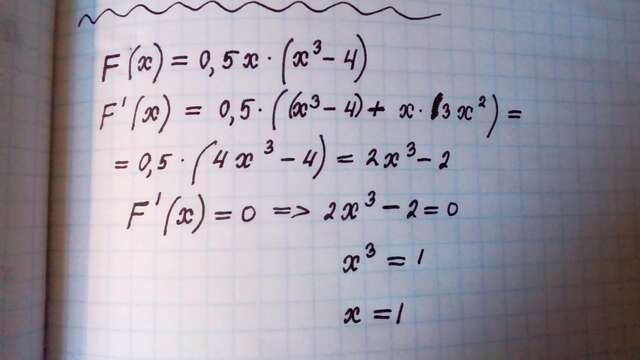 F(x) = 0,5x · (x³ - 4)
F'(x) = 0,5 · ((x³ - 4) + x · 3x²) =
= 0,5 · (4x³ - 4) = 2x³ - 2
F'(x) = 0 => 2x³ - 2 = 0
x³ = 1
x = 1